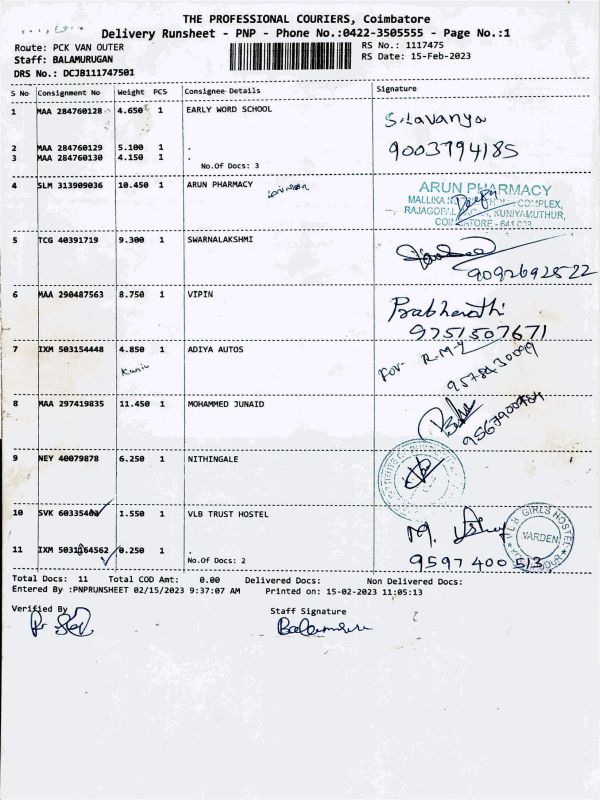 THE PROFESSIONAL COURIERS, Coimbatore
Delivery Runsheet - PNP - Phone No.:0422-3505555 - Page No.:1
Route: PCK VAN OUTER
RS No.: 1117475
Staff: BALAMURUGAN
RS Date: 15-Feb-2023
DRS No.: DCJB111747501
S No Consignment No Weight PCS Consignee Details Signature
1 MAA 284760128 4.650 1 EARLY WORD SCHOOL
S. Lavanya
2 MAA 284760129 5.100 1 .
9003794185
3 MAA 284760130 4.150 1
No.Of Docs: 3
4 SLM 313909036 10.450 1 ARUN PHARMACY
ARUN PHARMACY
MALLIKA COMPLEX,
RAJAGOPAL KUNIYAMUTHUR,
5 TCG 40391719 9.300 1 SWARNALAKSHMI
9092692522
6 MAA 290487563 8.750 1 VIPIN
Prabharathi
9751507671
7 IXM 503154448 4.850 1 ADIYA AUTOS
For R.M.Y
9578430099
8 MAA 297419835 11.450 1 MOHAMMED JUNAID
9 NEY 40079878 6.250 1 NITHINGALE
10 SVK 6033540 1.550 1 VLB TRUST HOSTEL
VLB GIRLS HOSTEL
WARDEN
11 0.250 1 .
9597 400 513
No.Of Docs: 2
Total Docs: 11 Total COD Amt: 0.00 Delivered Docs: Non Delivered Docs:
Entered By :PNPRUNSHEET 02/15/2023 9:37:07 AM Printed on: 15-02-2023 11:05:13
Verified By
Staff Signature